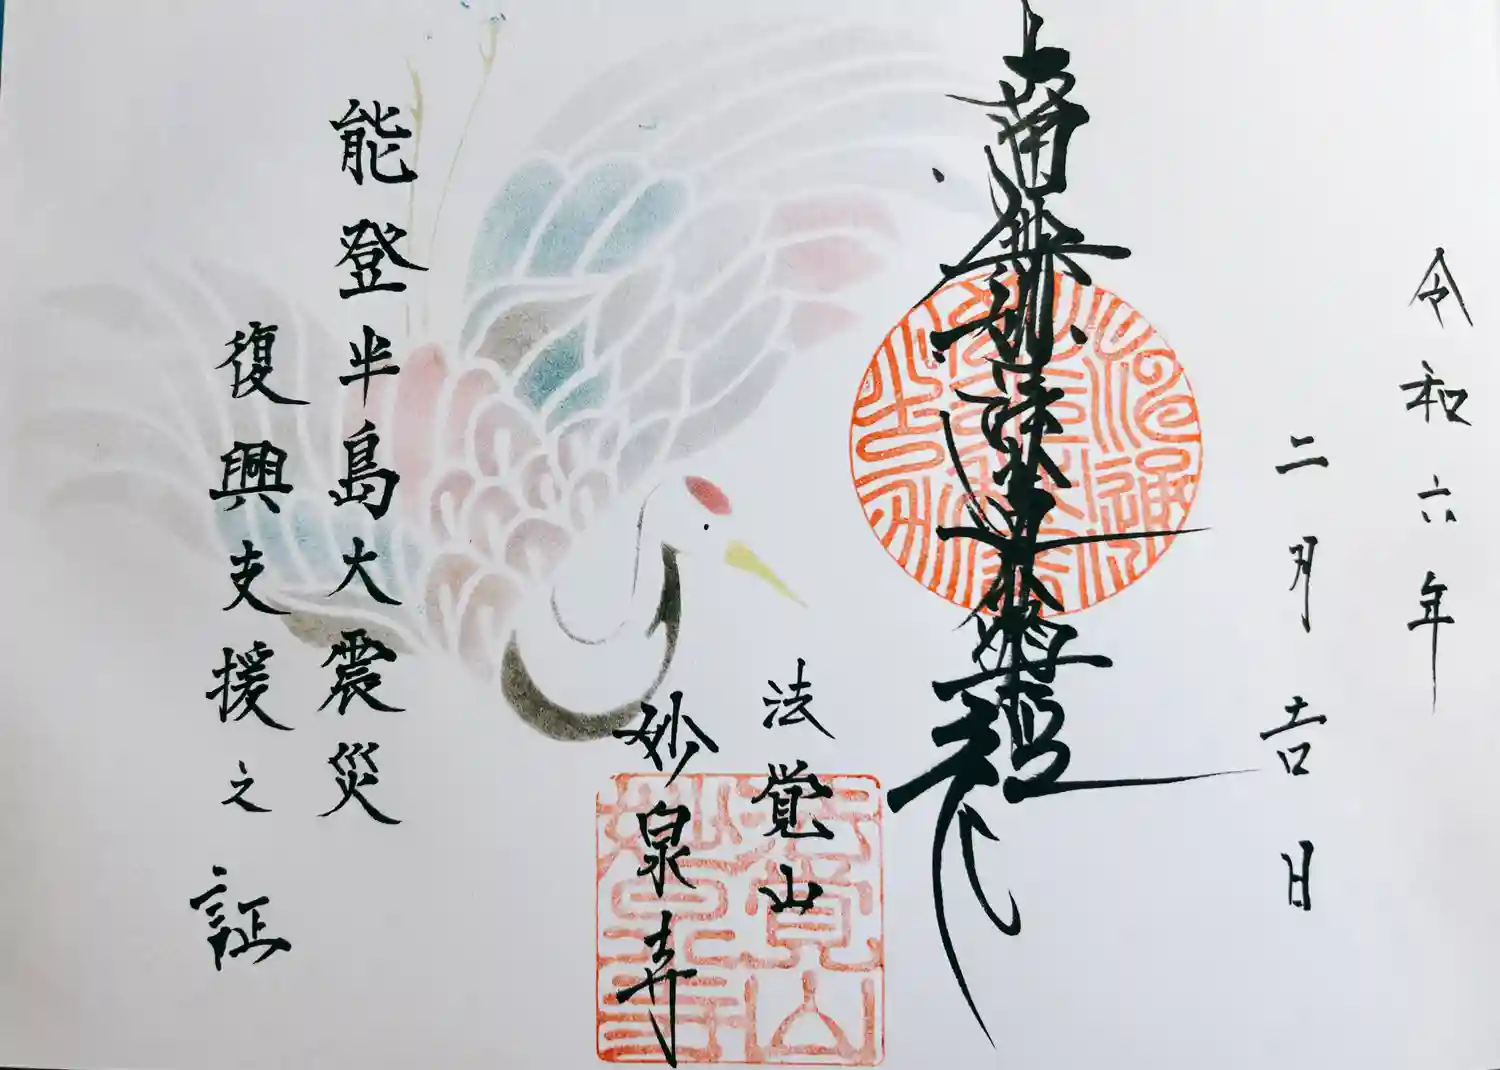 令和六年
二月吉日
南無
法覚山
妙泉寺
法覚山
妙泉寺
能登半島大震災
復興支援之証